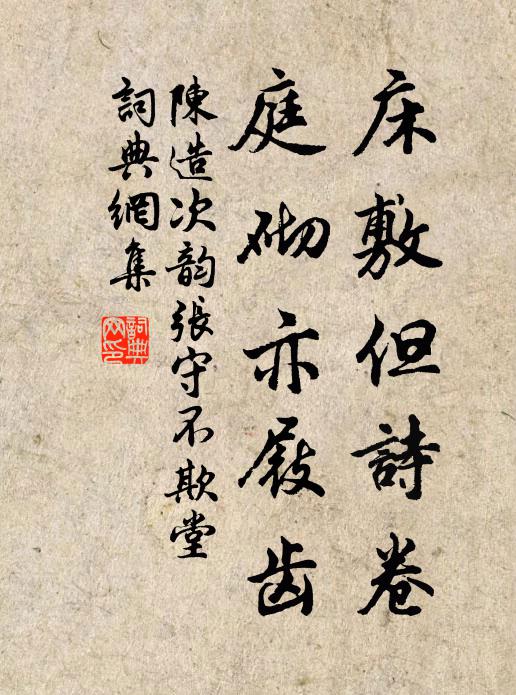 床敷但詩卷
庭砌亦屐齒
陳造次韵張守不欺堂
詞典網集
詞典網印